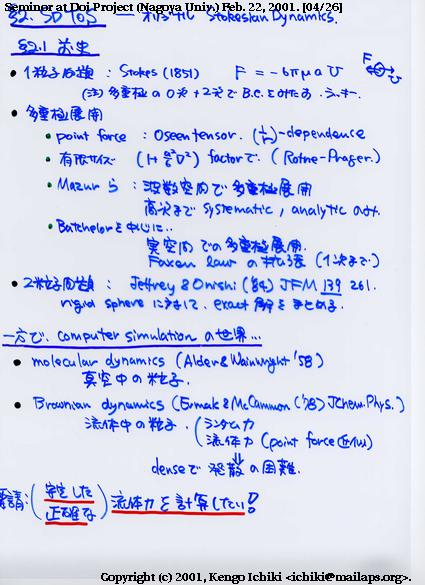 Seminar at Doi Project (Nagoya Univ.) Feb. 22, 2001. [04/26]
§2. SD 1つらつ — オリジナル Stokesian Dynamics.
§2.1 歴史
• 1粒子問題 : Stokes (1851) F = -6πμa U F U
(注) 多重極の0次+2次でB.C.をみたす.
• 多重極展開
• point force : Oseen tensor. (1/r)-dependence
• 有限サイズ (1+a²/6 ∇²) factorで. (Rotne-Prager.)
• Mazur ら : 波数空間で多重極展開
高次まで systematic, analytic のみ.
• Batchelorを中心に..
実空間での多重極展開.
Faxen law の拡張 (1次まで)
• 2粒子問題 : Jeffrey & Onishi ('84) JFM 139 261.
rigid sphere に対して. exact 解をまとめる.
一方で, computer simulation の世界...
• molecular dynamics (Alder & Wainwright '58)
真空中の粒子.
• Brownian dynamics (Ermak & McCammon ('78) J.Chem.Phys.)
流体中の粒子. ランダム力
流体力 (point force
⇓
denseで発散の困難.
要請: 安定した
正確な 流体力を計算したい!
Copyright (c) 2001, Kengo Ichiki <ichiki@mailaps.org>.